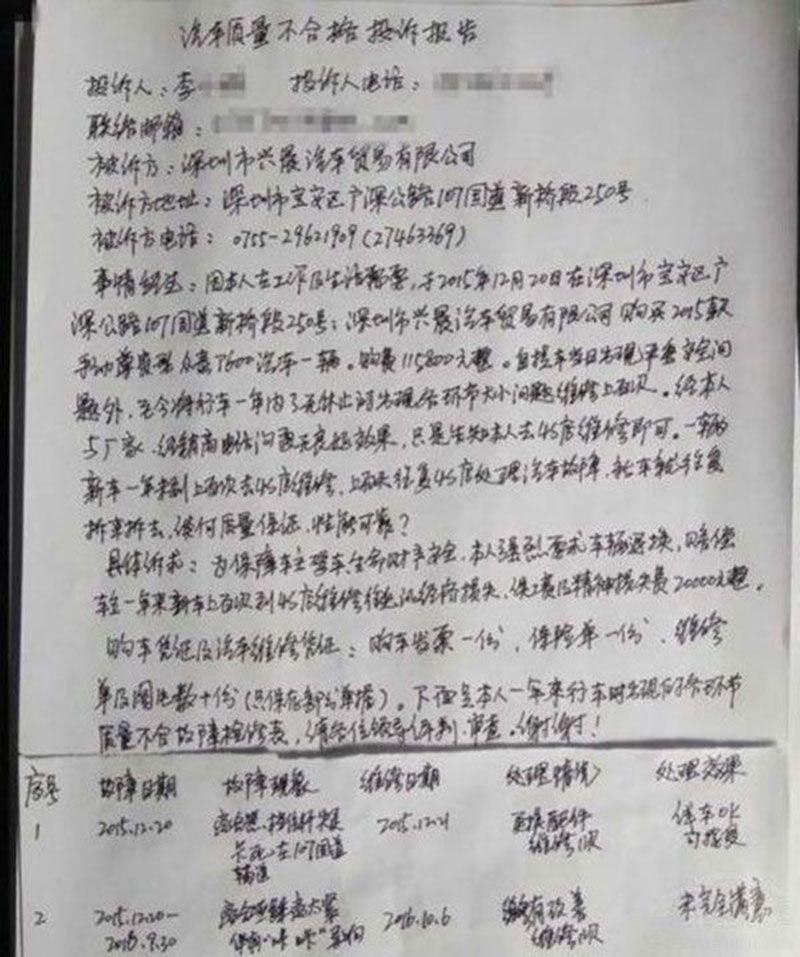 汽车质量不合格投诉报告
投诉人：李 投诉人电话：
联络邮箱：
被诉方：深圳市兴晟汽车贸易有限公司
被诉方地址：深圳市宝安区广深公路107国道新桥段250号
被诉方电话：0755-29621909(27463369)
事情经过：因本人在工作及生活需要，于2015年12月20日在深圳市宝安区广
深公路107国道新桥段250号：深圳市兴晟汽车贸易有限公司购买2015款
手动尊贵型众泰T600汽车一辆。购费115800元整。自提车当日出现严重安全问
题外，至今将行车一年内了无休止的出现各环节大小问题维修上百次。经本人
与厂家、经销商电话沟通无良好效果，只是告知本人去4S店维修即可。一辆
新车一年未到上百次去4S店维修，上百天往复4S店处理汽车故障，新车就往复
拆来拆去，使何质量保证，性能可靠？
具体诉求：为保障车主驾车生命财产安全，本人强烈要求车辆退换，赔偿
车主一年来新车上百次到4S店维修往返的经济损失，误工费及精神损失费20000元整。
购车凭证及汽车维修凭证：购车发票一份，保险单一份，维修
单及图片数十份(只保存部分单据)。下面是本人一年来行车时出现的各环节
质量不合故障检修表，请各位领导评判、审查。谢谢！
序号 故障日期 故障现象 维修日期 处理情况 处理效果
1 2015.12.20 离合器、挡位杆失灵 2015.12.21 更换配件 停车OK
卡死在107国道 维修1次 可接受
辅道
2 2015.12.20- 2016.10.6 有改善 未完全满意
2016.9.30 伴有"咔咔"异响 维修1次